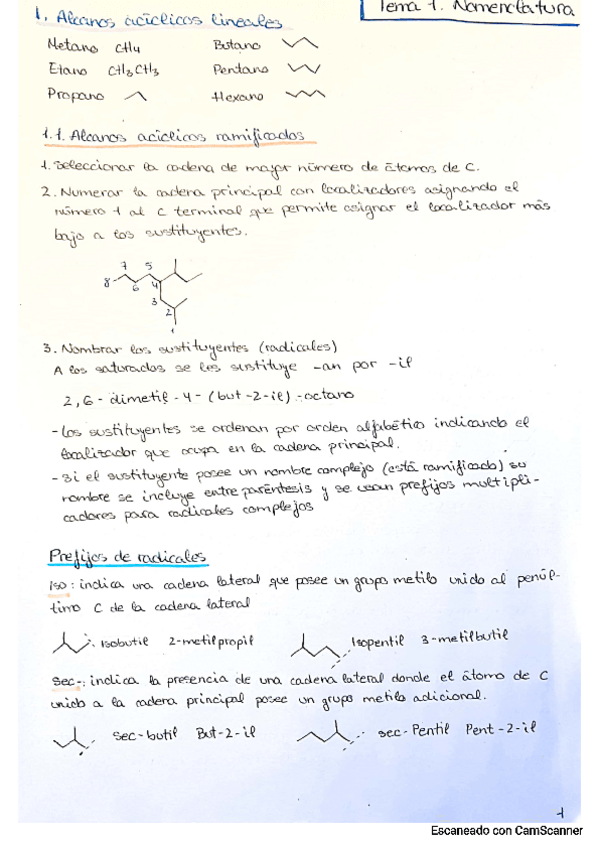 Tema 1. Nomenclatura
1. Alcanos acíclicos lineales
Metano CH4 Butano
Etano CH3CH3 Pentano
Propano Hexano
1.1. Alcanos acíclicos ramificados
1. Seleccionar la cadena de mayor número de átomos de C.
2. Numerar la cadena principal con localizadores asignando el
número 1 al C terminal que permite asignar el localizador más
bajo a los sustituyentes.
7 5
8 6 4
3
2
1
3. Nombrar los sustituyentes (radicales)
A los saturados se les sustituye -an por -il
2,6-dimetil-4-(but-2-il)-octano
- Los sustituyentes se ordenan por orden alfabético indicando el
localizador que ocupa en la cadena principal.
- Si el sustituyente posee un nombre complejo (está ramificado) su
nombre se incluye entre paréntesis y se usan prefijos multipli-
cadores para radicales complejos
Prefijos de radicales
Iso: indica una cadena lateral que posee un grupo metilo unido al penúl-
timo C de la cadena lateral
Isobutil 2-metilpropil Isopentil 3-metilbutil
Sec-: indica la presencia de una cadena lateral donde el átomo de C
unido a la cadena principal posee un grupo metilo adicional.
Sec-butil But-2-il sec-Pentil Pent-2-il
1
Escaneado con CamScanner